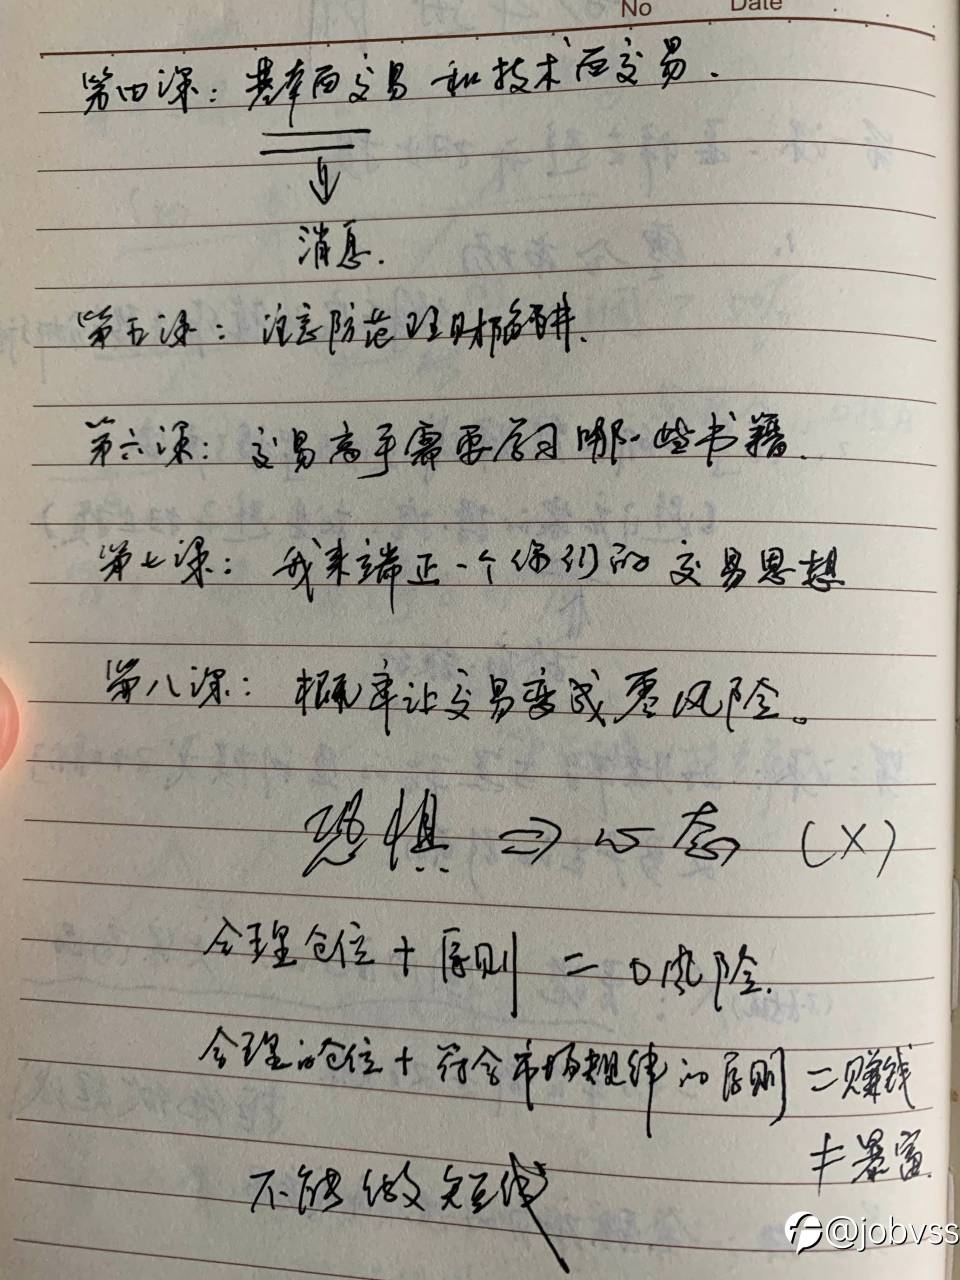 No Date
第四课：基本面交易和技术面交易.
消息.
第五课：注意防范理财陷阱.
第六课：交易高手需要学习哪些书籍.
第七课：我来端正一个你们的交易思想
第八课：概率让交易变成零风险。
恐惧 ⇒ 心态 (X)
合理仓位 + 原则 = 0风险.
合理的仓位 + 符合市场规律的原则 = 赚钱
≠ 暴富.
不能做短线
@jobvss